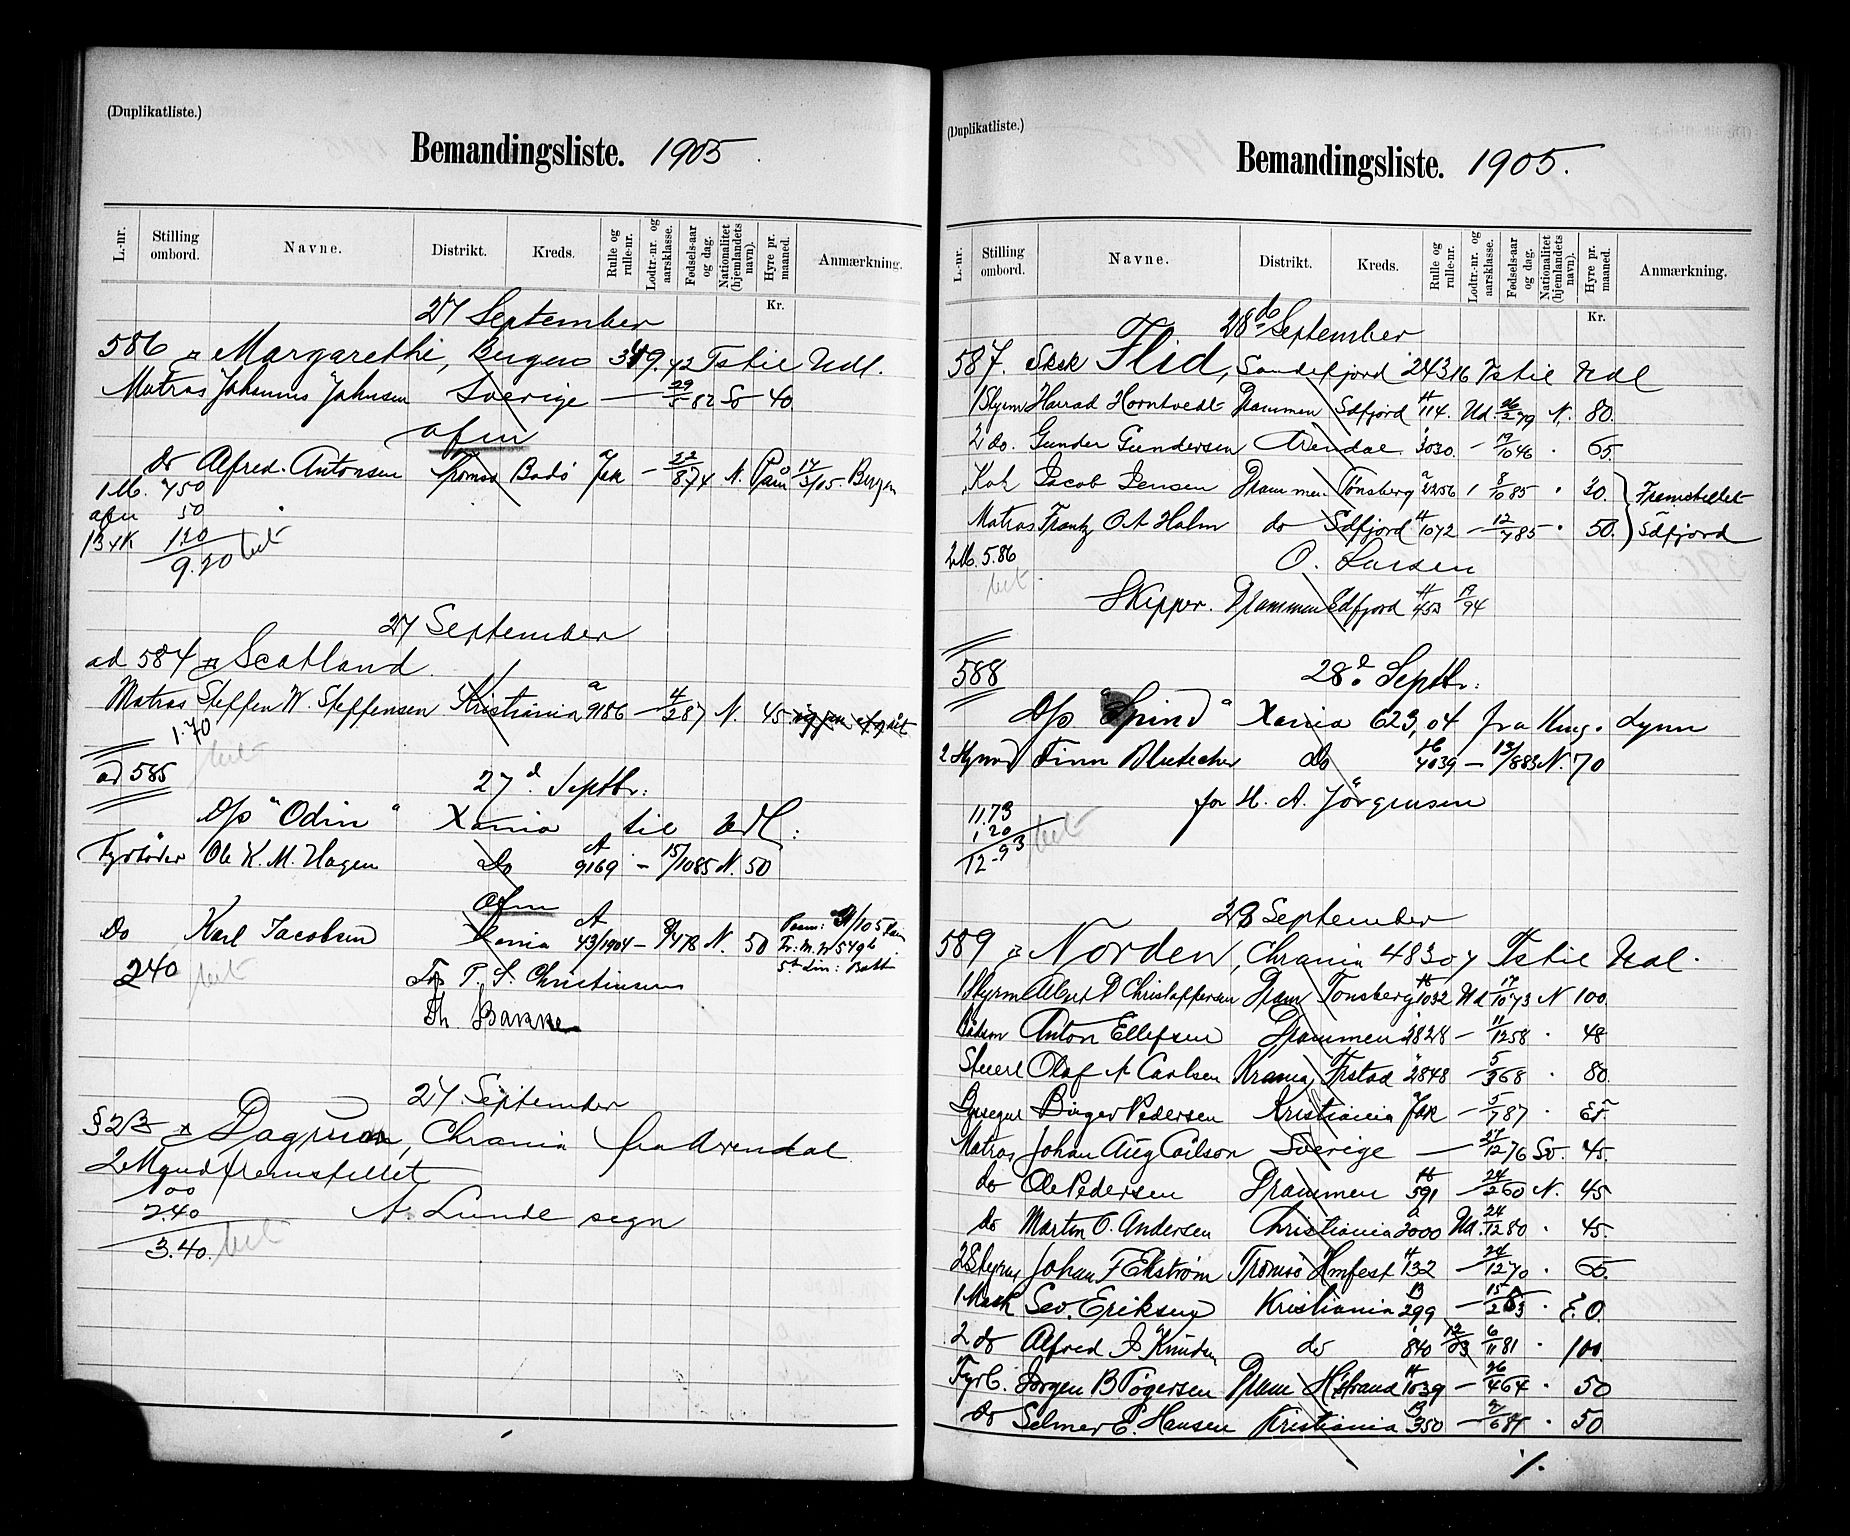 (Duplikatliste.)
Bemandingsliste. 1905
L.-nr. Stilling ombord. Navne. Distrikt. Kreds. Rulle og rulle-nr. Lodtr.-nr. og aarsklasse. Fødsels-aar og dag. Nationalitet (hjemlandets navn). Hyre pr. maaned. Anmærkning.
Kr.
27 September
586 Margarethe, Bergen 349.42 Ts til Udl.
Matros Johannes Johnsen Sverige — 29/5 82 Sv 40
afm
do Alfred Antonsen Tromsø Bodø — 22/8 74 N. 17/3/05 Bergen
1 M. 7.50
afm 50
1.20
9.20 bet
27 September
ad 584 Scotland
Matros Steffen W. Steffensen Kristiania a 9186 — 4/2 87 N. 45
1.70
bet
ad 585
27d Septbr:
D/s "Odin" Xania til Udl:
Fyrbøder Ole K. M. Hagen Do A 9169 — 15/10 85 N. 50
Afm
Do Karl Jacobsen Xania A 43/1904 — 9/4 78 N. 50
2.40 bet
P. S. Christensen
Th. Bakke
27 September
§ 2 B Dagmar, Chrania fra Arendal
2 Mand fremstillet
1.00
2.40
3.40. bet
A. Lunde sign
(Duplikatliste.)
Bemandingsliste. 1905.
L.-nr. Stilling ombord. Navne. Distrikt. Kreds. Rulle og rulle-nr. Lodtr.-nr. og aarsklasse. Fødsels-aar og dag. Nationalitet (hjemlandets navn). Hyre pr. maaned. Anmærkning.
Kr.
28de September
587. Sksk Flid, Sandefjord 243 16 Ts til Udl
1 Styrm Harrad Horntvedt Drammen Sdfjord H 114. Ud. 26/2 79 N. 80.
2 do. Gunder Gundersen Arendal 3030. — 19/10 46 · 65
Kok Jacob Jensen Drammen Tønsberg a 2256 1 8/10 85 · 30. Fremstillet
Matros Frantz O A Holm do Sdfjord H 1072 — 12/7 85 · 50. Sdfjord
2 M. 5.86
bet
O. Larsen
Skipper. Drammen Sdfjord H 453 17/94
588
28d Septbr:
D/s "Spind" Xania 623,04 fra King. Lynn
2 Styrmd Finn Blutecher Do H 4039 — 13/8 83 N. 70
for H. A. Jørgensen
11.73
1.20
12.93 bet
28 September
589 Norden, Chrania 483 07 Ts til Udl.
1 Styrm Albert P Christoffersen Dram Tønsberg H 1032 Ud 17/10 73 N 100
Anton Ellefsen Drammen 2828 — 11/12 58 · 48
Stuert Olaf A Carlsen Krania Frstad 2848 — 5/3 68 · 80
Birger Pedersen Kristiania — 5/7 87 ·
Matros Johan Aug Carlson Sverige — 27/12 76 Sv. 45.
do Ole Pedersen Drammen H 591 — 24/2 60 N. 45
do Martin O. Andersen Christiania a 2000 Ud. 24/12 80 · 45.
2 Styrm Johan F Ekstrøm Tromsø Hmfest H 132 — 24/12 70 · 65.
1 Mask Sev. Eriksen Kristiania B 299 — 15/2 · E. O.
2 do Alfred J Knudsen do 840 12/03 6/11 81 · 100.
Fyrb. Jørgen B Tøgersen Dram Hstrand H 1039 — 26/4 64 · 50
do Selmer E. Hansen Kristiania B 350 — 2/6 84 · 50
%.